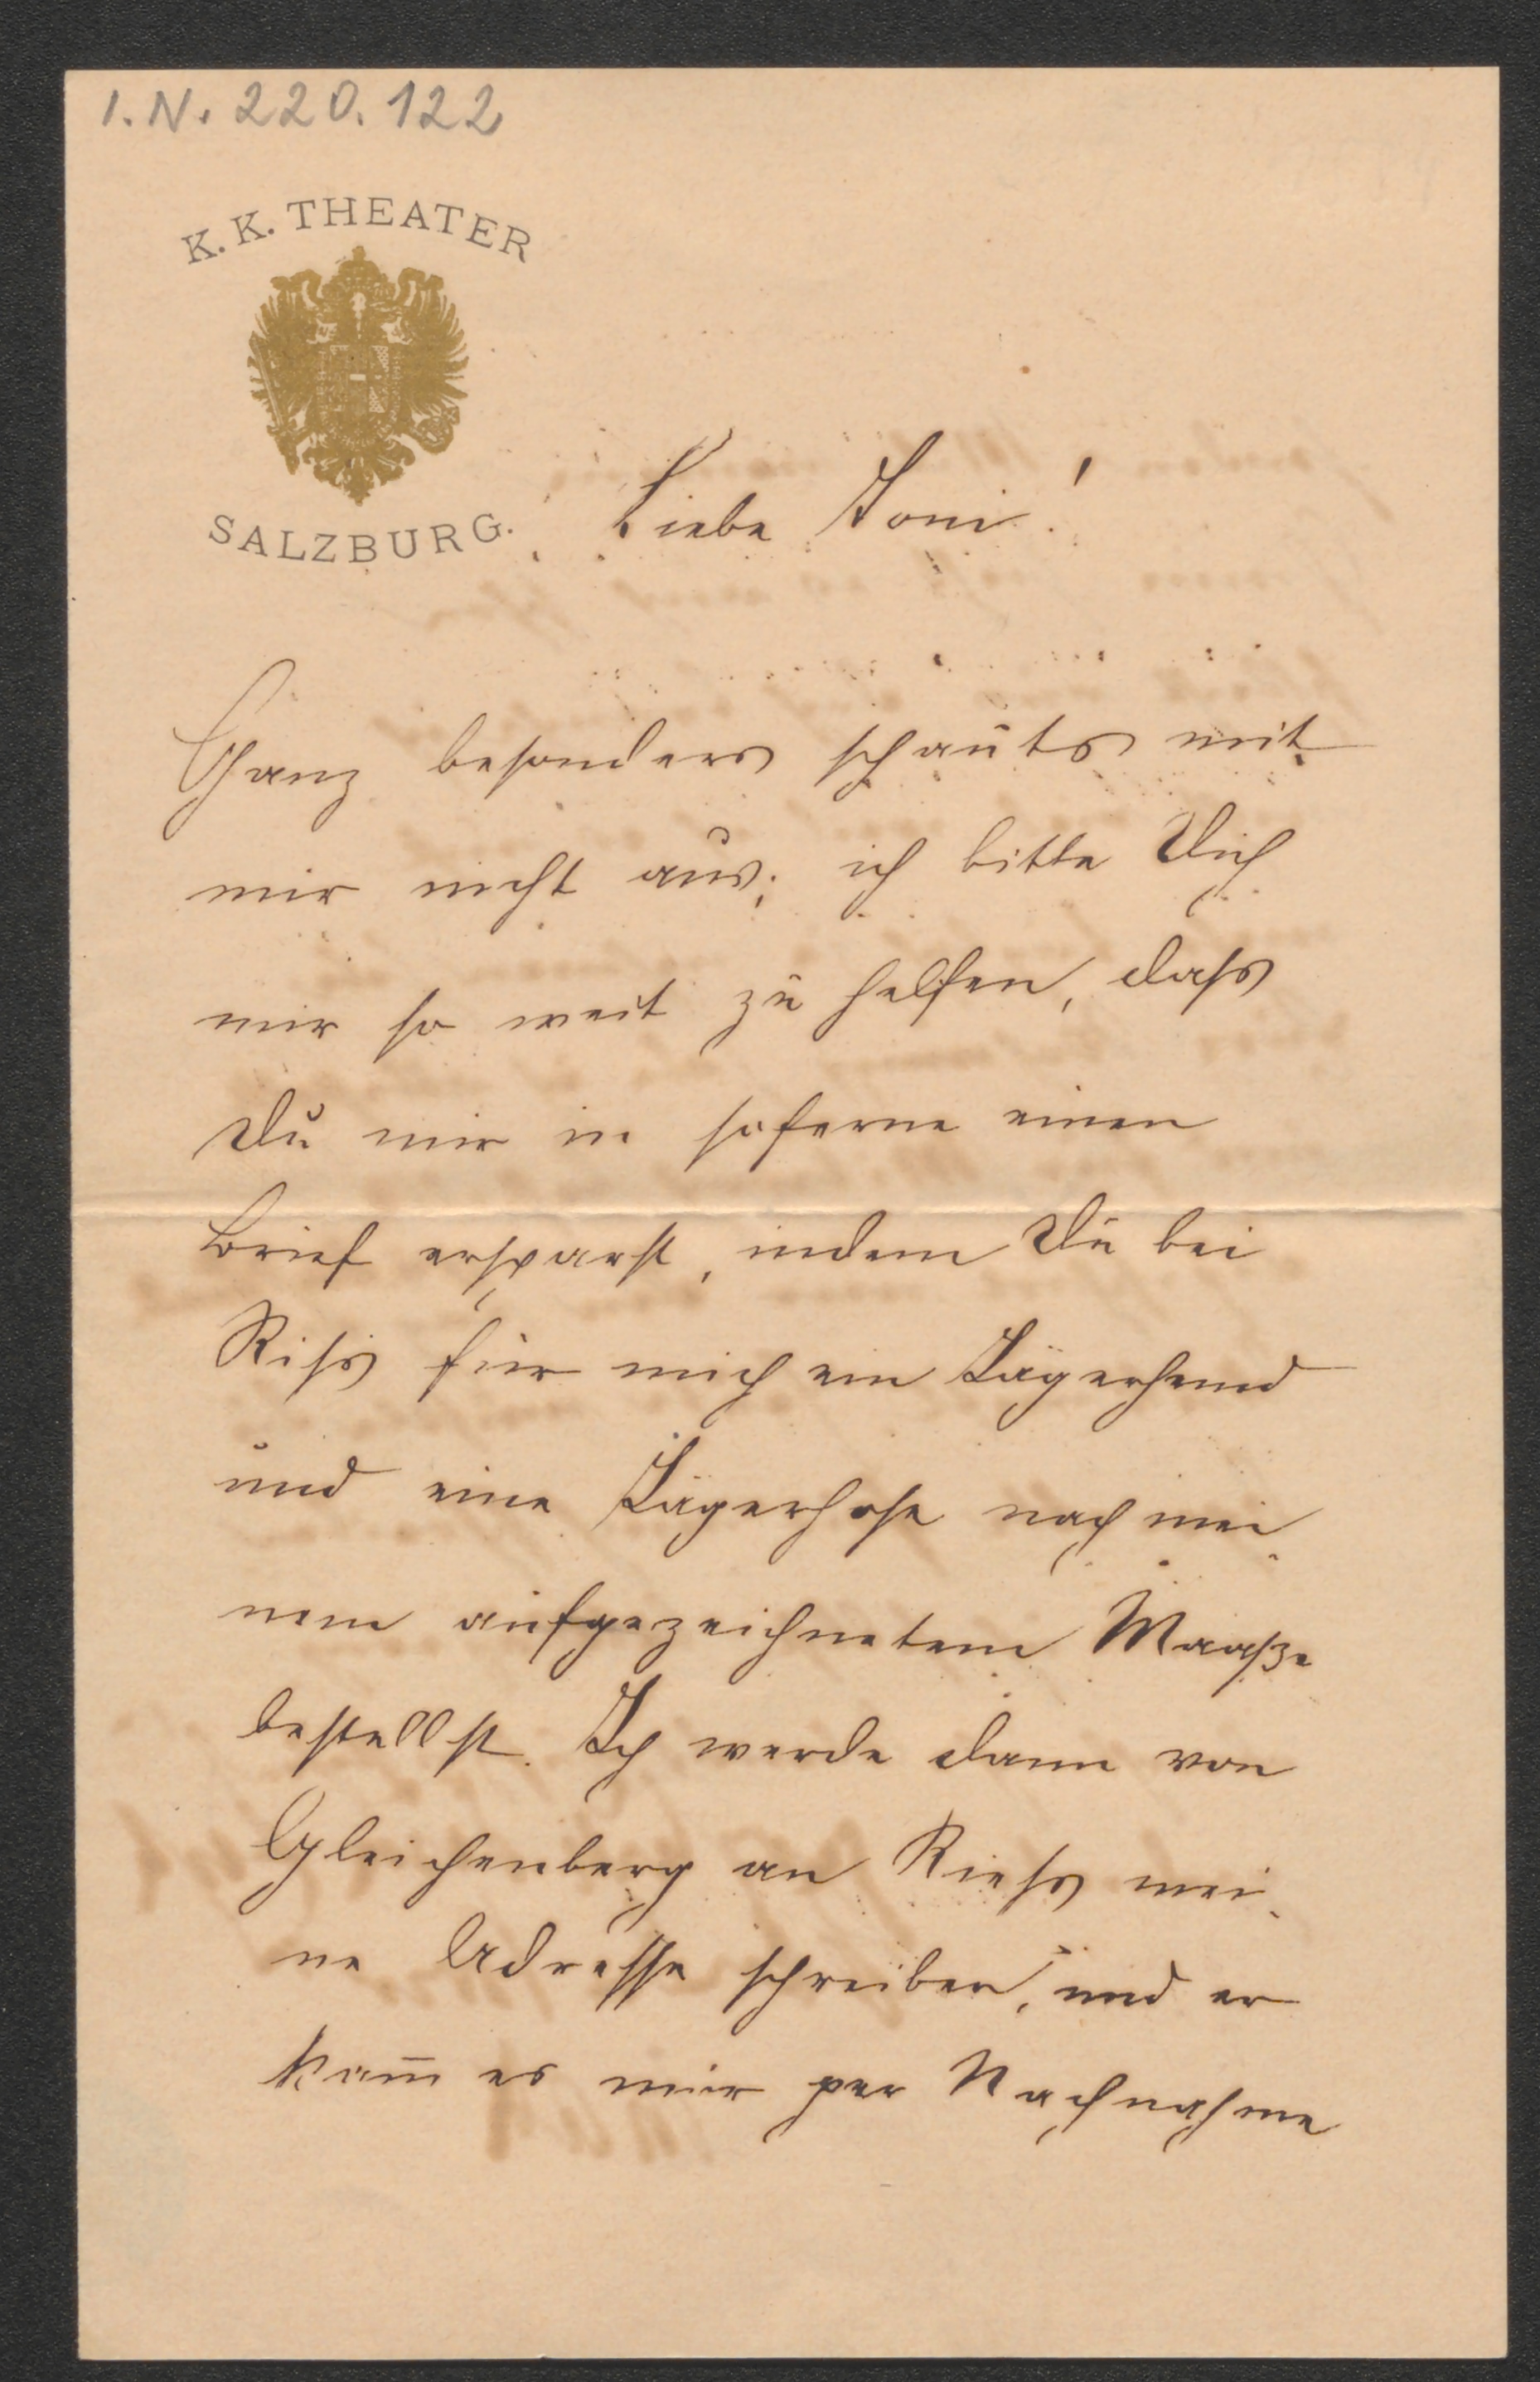 I.N. 220.122
K.K. THEATER
SALZBURG.
Liebe Toni!
Ganz besonders schauts mit
mir nicht aus; ich bitte Dich
mir so weit zu helfen, dass
Du mir in soferne einen
Brief ersparst, indem Du bei
Riss für mich ein Jägerhemd
und eine Jägerhose nach mei
nem aufgezeichnetem Maaße
bestellst. Ich werde dann von
Gleichenberg an Riess mei-
ne Adresse schreiben, und er
kan̄ es mir per Nachnahme